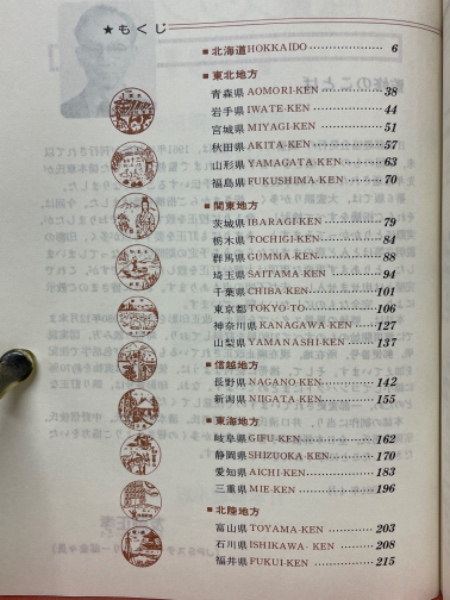 ★もくじ
■北海道 HOKKAIDO ………………… 6
■東北地方
青森県 AOMORI-KEN ……………… 38
岩手県 IWATE-KEN ……………… 44
宮城県 MIYAGI-KEN ……………… 51
秋田県 AKITA-KEN ……………… 57
山形県 YAMAGATA-KEN ………… 63
福島県 FUKUSHIMA-KEN ………… 70
■関東地方
茨城県 IBARAGI-KEN …………… 79
栃木県 TOCHIGI-KEN …………… 84
群馬県 GUMMA-KEN ……………… 88
埼玉県 SAITAMA-KEN …………… 94
千葉県 CHIBA-KEN ……………… 101
東京都 TOKYO-TO ……………… 106
神奈川県 KANAGAWA-KEN ……… 127
山梨県 YAMANASHI-KEN ……… 137
■信越地方
長野県 NAGANO-KEN …………… 142
新潟県 NIIGATA-KEN …………… 155
■東海地方
岐阜県 GIFU-KEN ……………… 162
静岡県 SHIZUOKA-KEN ………… 170
愛知県 AICHI-KEN ……………… 183
三重県 MIE-KEN ………………… 196
■北陸地方
富山県 TOYAMA-KEN …………… 203
石川県 ISHIKAWA-KEN ………… 208
福井県 FUKUI-KEN ……………… 215